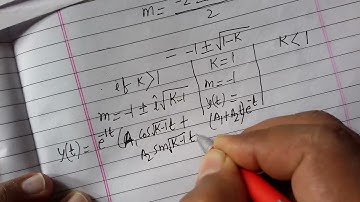 m = -2
2
= -1 ± √1-K
if K>1
m = -1 ± i√K-1
y(t) = e^-1t (A₁ cos√K-1 t +
A₂ sin√K-1 t
K = 1
m = -1
y(t) =
(A₁+A₂t)e^-t
K<1